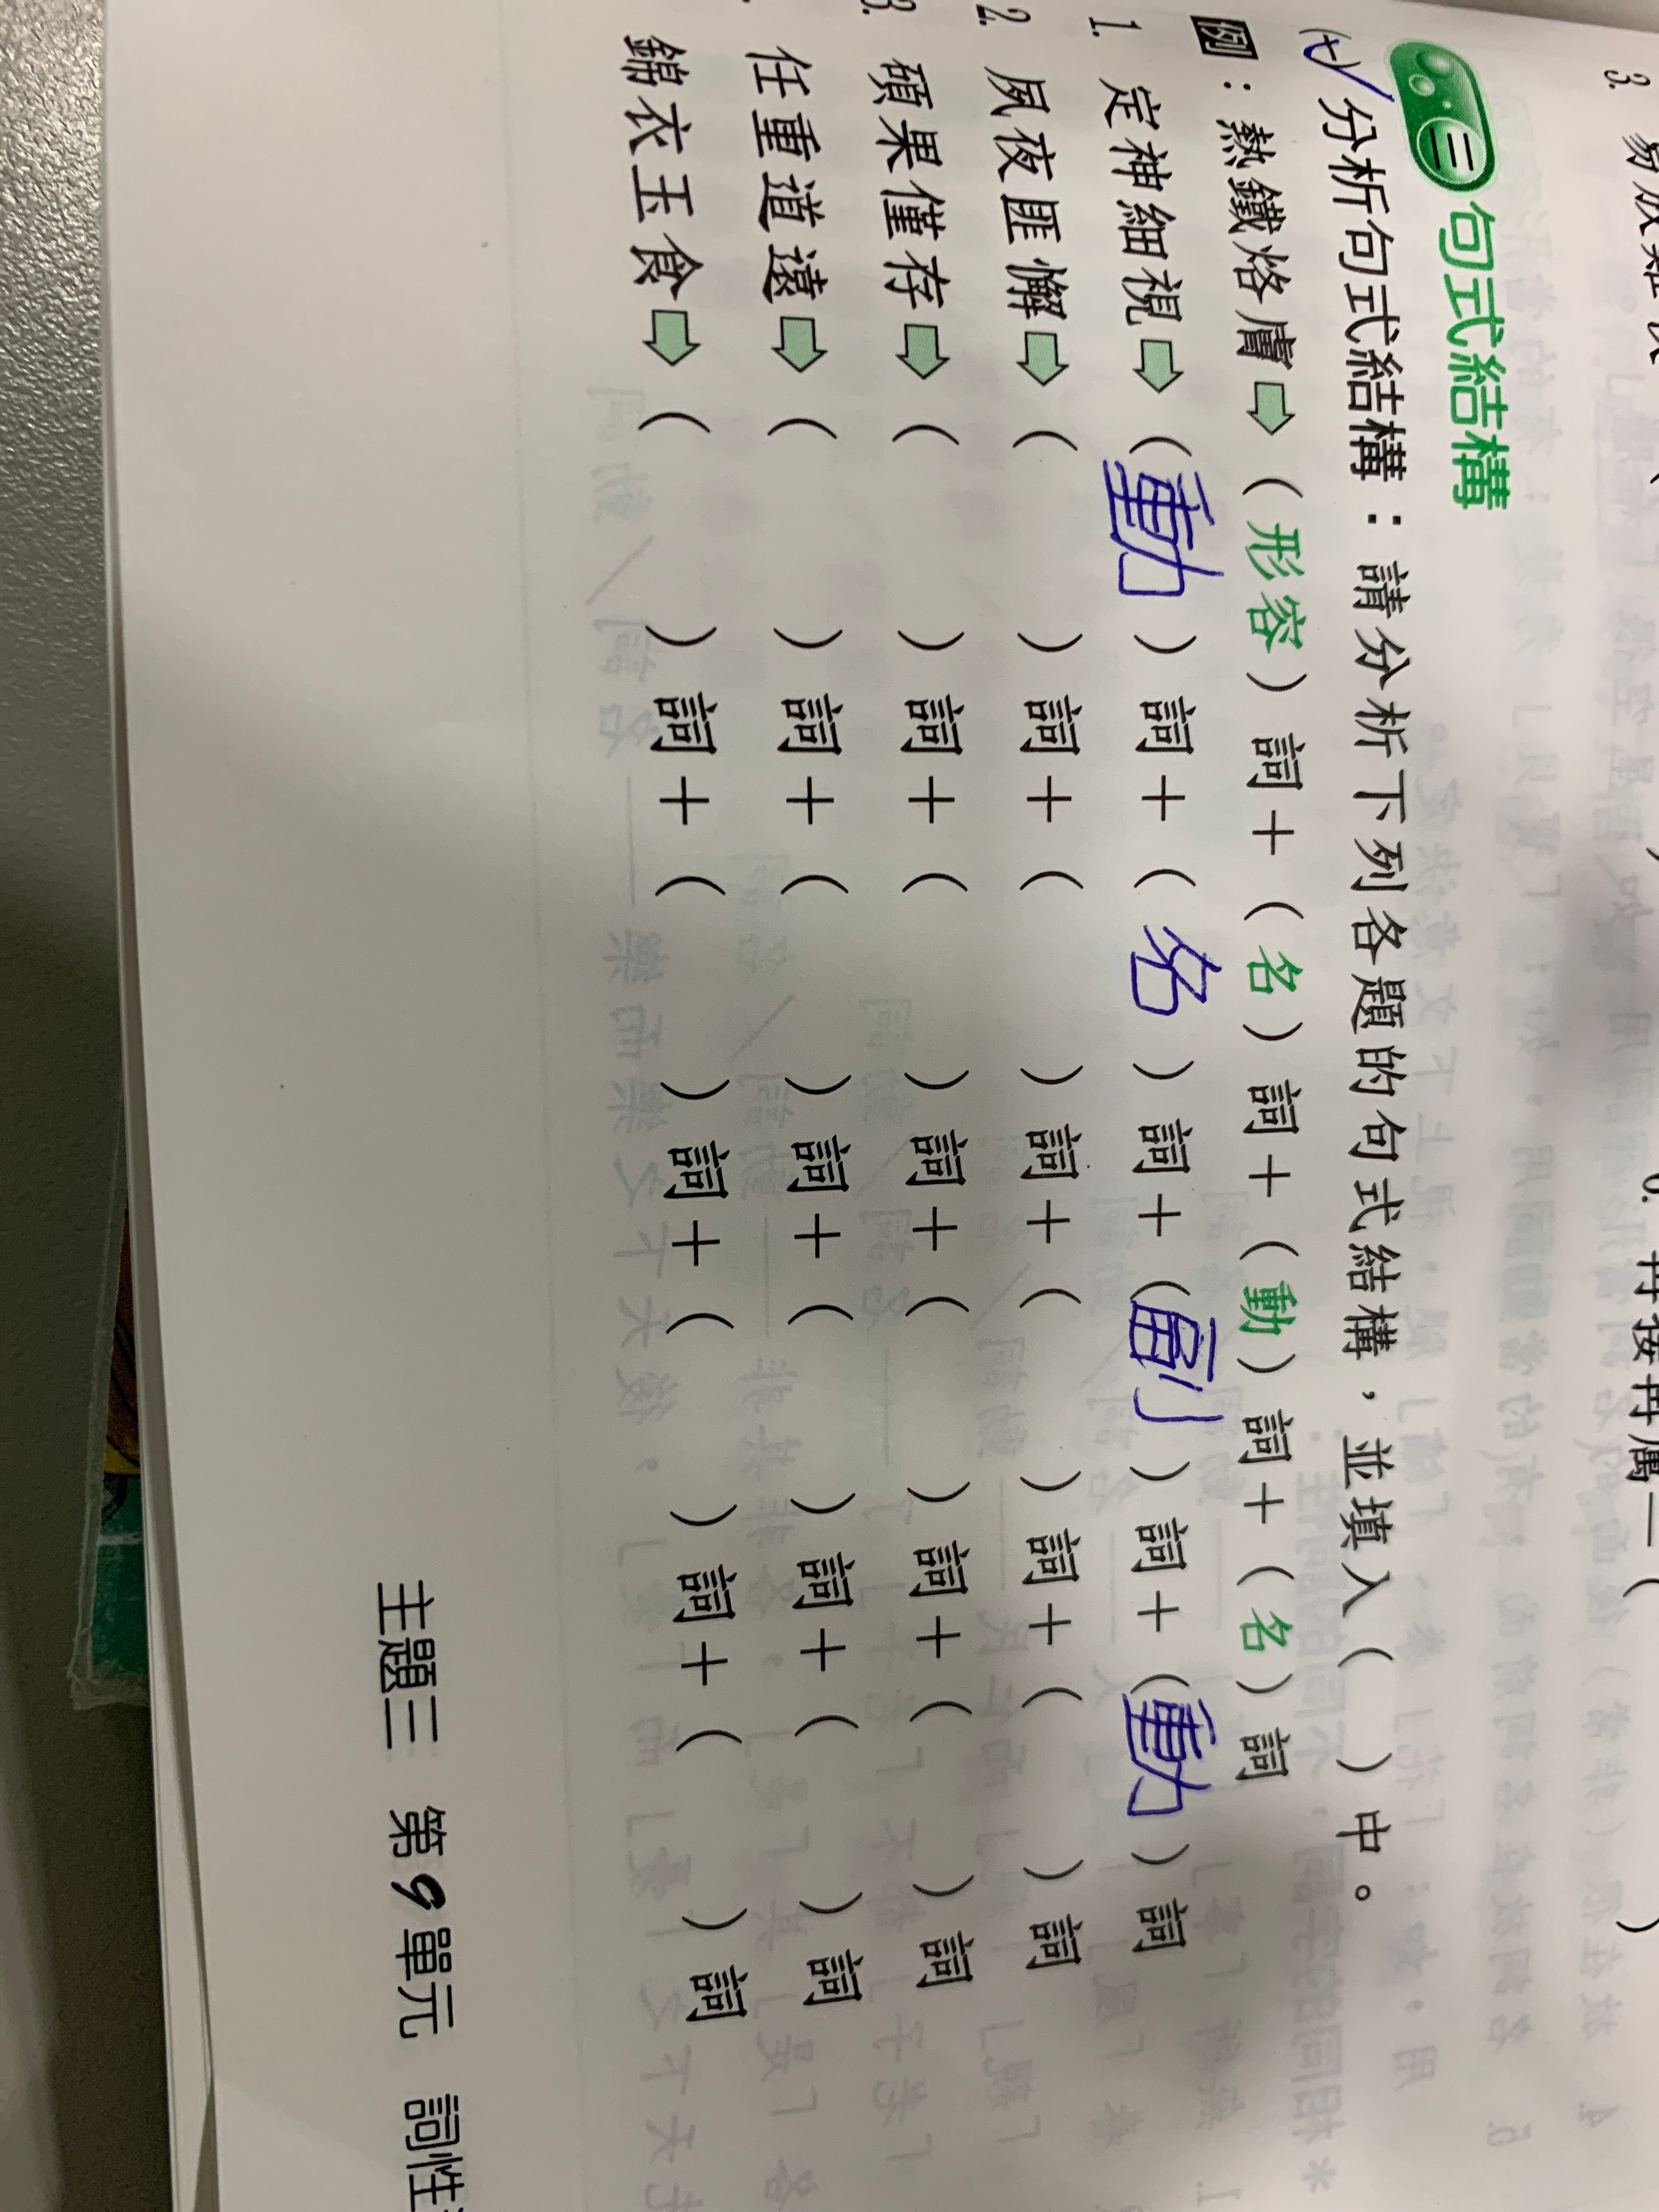 3. 易放難
6. 再接再厲—( )
三 句式結構
(七)分析句式結構：請分析下列各題的句式結構，並填入( )中。
例：熱鐵烙膚⇨(形容)詞＋(名)詞＋(動)詞＋(名)詞
1. 定神細視⇨(動)詞＋(名)詞＋(副)詞＋(動)詞
2. 夙夜匪懈⇨( )詞＋( )詞＋( )詞＋( )詞
3. 碩果僅存⇨( )詞＋( )詞＋( )詞＋( )詞
任重道遠⇨( )詞＋( )詞＋( )詞＋( )詞
錦衣玉食⇨( )詞＋( )詞＋( )詞＋( )詞
主題三 第9單元 詞性